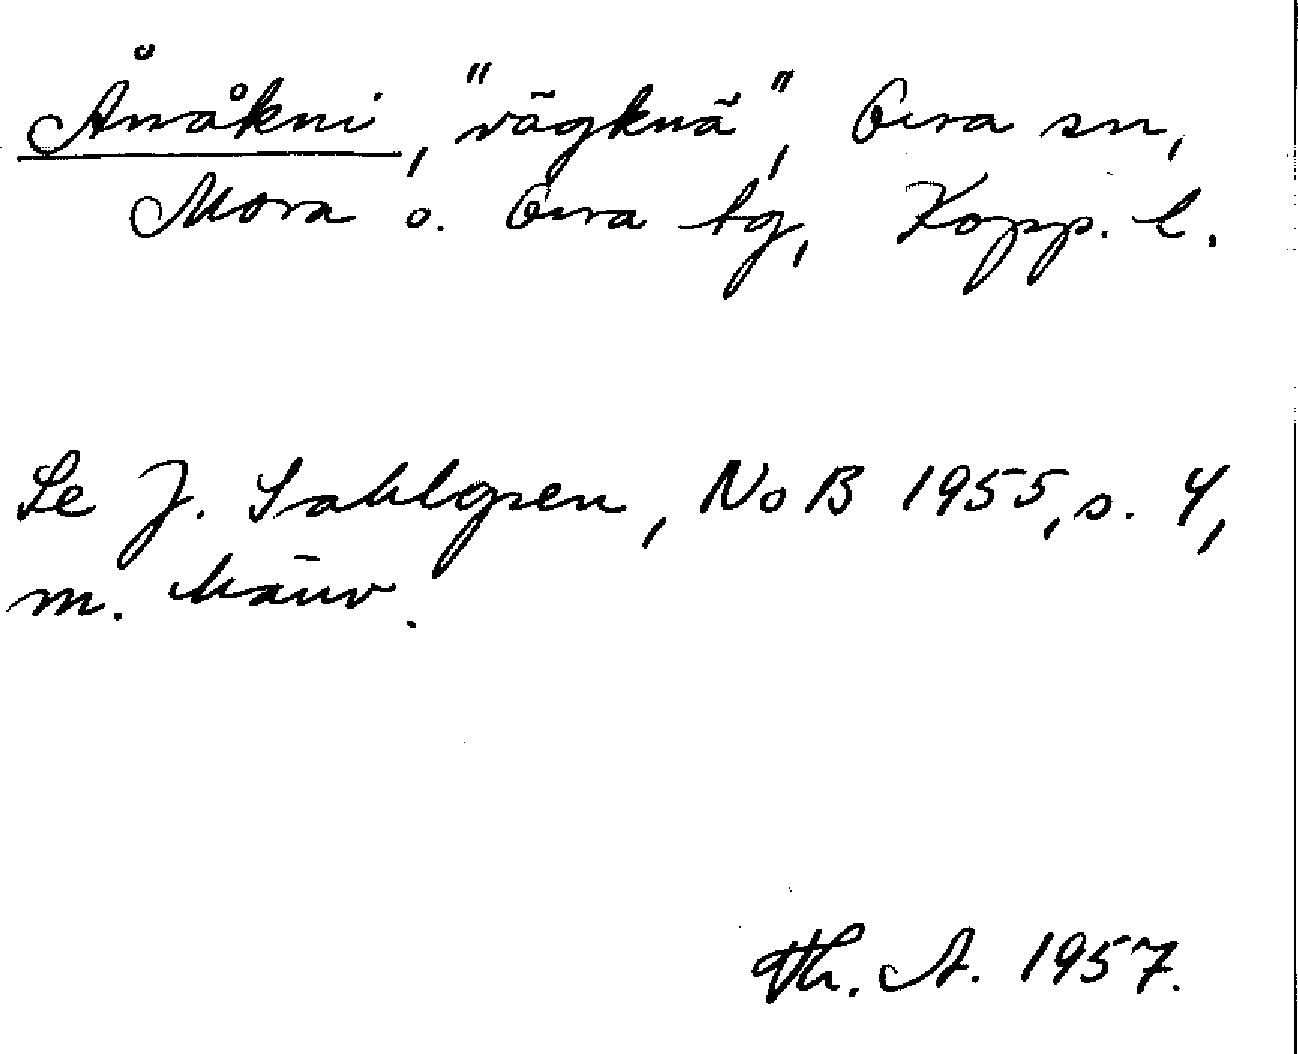 Ånåkni, "vägknä", Orsa sn,
Mora o. Orsa tg, Kopp. l.
Se J. Sahlgren, NoB 1955, s. 4,
m. hänv.
Th. A. 1957.